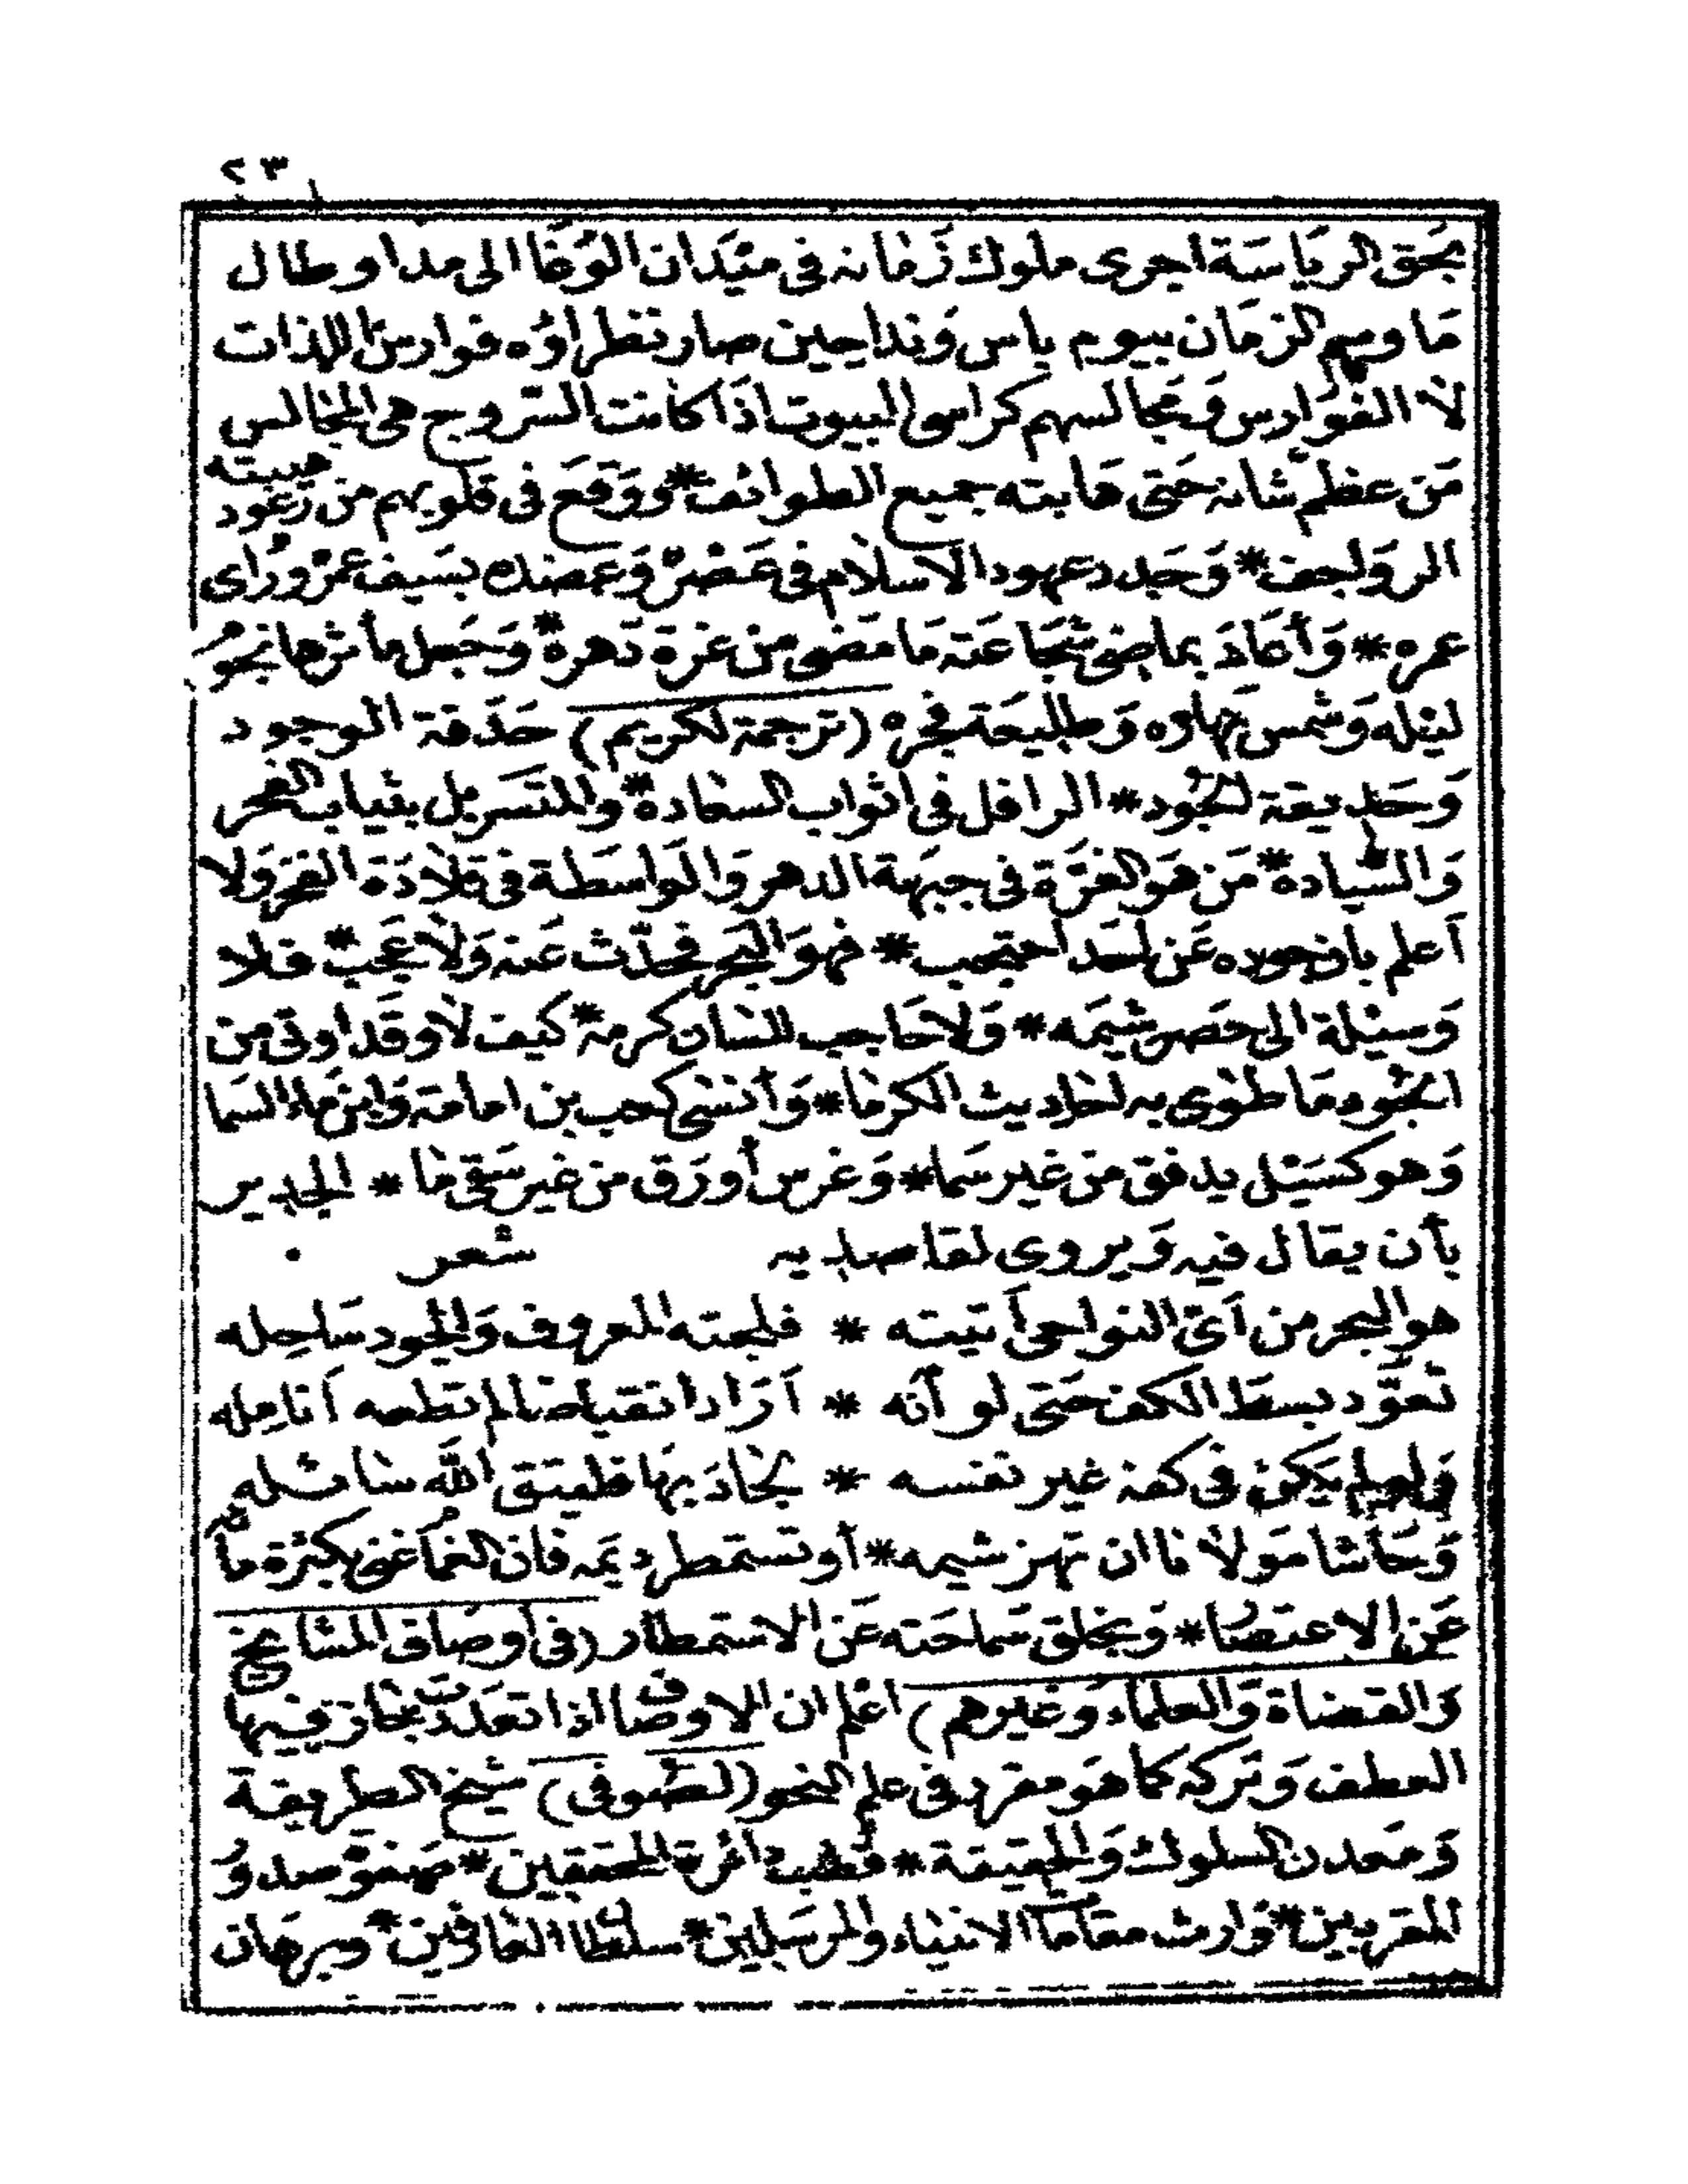 ٢٣
بحق الرياسة اجرى ملوك زمانه فى ميدان الوغا الى مدا وطال
ما وسهم الزمان بيوم باس وندا حين صار نظراؤه فوارس اللذات
لا الفوارس ومجالسهم كراسى البيوت اذا كانت السروج هى المجالس
من عظم شانه حتى هابته جميع الطوائف * ووقع فى قلوبهم من هيبته رعود
الرواجف * وجدد عهود الاسلام فى عصره وعضده بسيف عمرو وراى
عمره * وأعاد بماضى شجاعته ما مضى من غرة دهره * وجعل مأثرها نجوم
ليله وشمس نهاره وطليعة فجره (ترجمة لكريم) حدقة الوجود
وحديقة الجود * الرافل فى اثواب السعادة * والمتسربل بثياب الفخر
والسيادة * من هو الغرة فى جبهة الدهر والواسطة فى قلادة الفخر ولا
أعلم بان جوده عن احد احتجب * فهو البحر فحدّث عنه ولا عجب * فلا
وسيلة الى حصر شيمه * ولا حاجب للسان كرمه * كيف لا وقد اوتى من
الجود ما طوى به احاديث الكرما * وأنسى كعب بن امامة وابن ماء السما
وهو كسيل يدفق من غير سما * وغرس أورق من غير سقى ما * الجدير
بأن يقال فيه ويروى لقاصديه شعر
هو البحر من أىّ النواحى أتيته * فلجته المعروف والجود ساحله
تعوّد بسط الكف حتى لو أنه * أراد انقباضا لم تطعه أنامله
ولو لم يكن فى كفه غير نفسه * لجاد بها فليتق الله سائله
وحاشا مولانا ان تهز شيمه * أو تستمطر ديمه فان الغمام غنى بكثرة مائه
عن الاعتصار * ويجلق سماحته عن الاستمطار (فى أوصاف المشايخ
والقضاة والعلماء وغيرهم) اعلم ان الاوصاف اذا تعددت جاز فيها
العطف وتركه كما هو مقرر فى علم النحو (لصوفى) شيخ الطريقة
ومعدن السلوك والحقيقة * قطب دائرة المحققين * صفوة صدور
المقربين * وارث مقامات الانبياء والمرسلين * سلطان العارفين * وبرهان